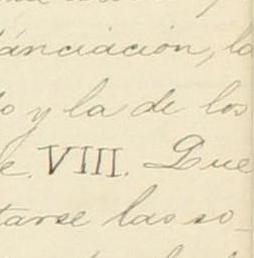 anciación, lo
o y la de los
e. VIII. Que
tarse las so-